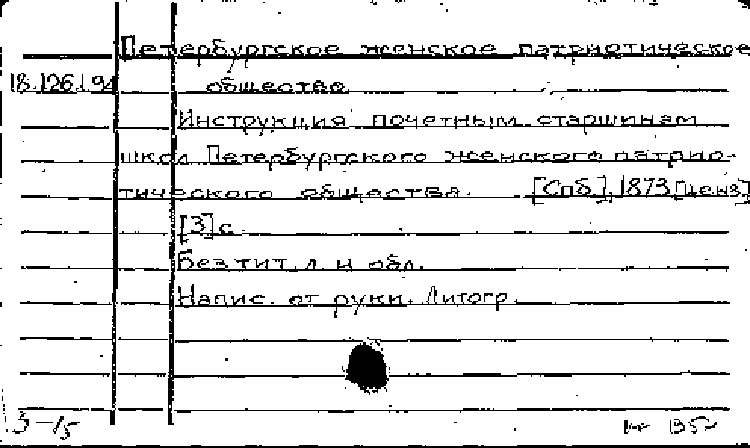 Петербургское женское патриотическое
18.126.1.94 общество
Инструкция почетным старшинам
школ Петербургского женского патрио-
тического общества. [Спб], 1873 [ценз]
[3] с.
Без тит. л. и обл.
Напис. от руки. Литогр.
3-15